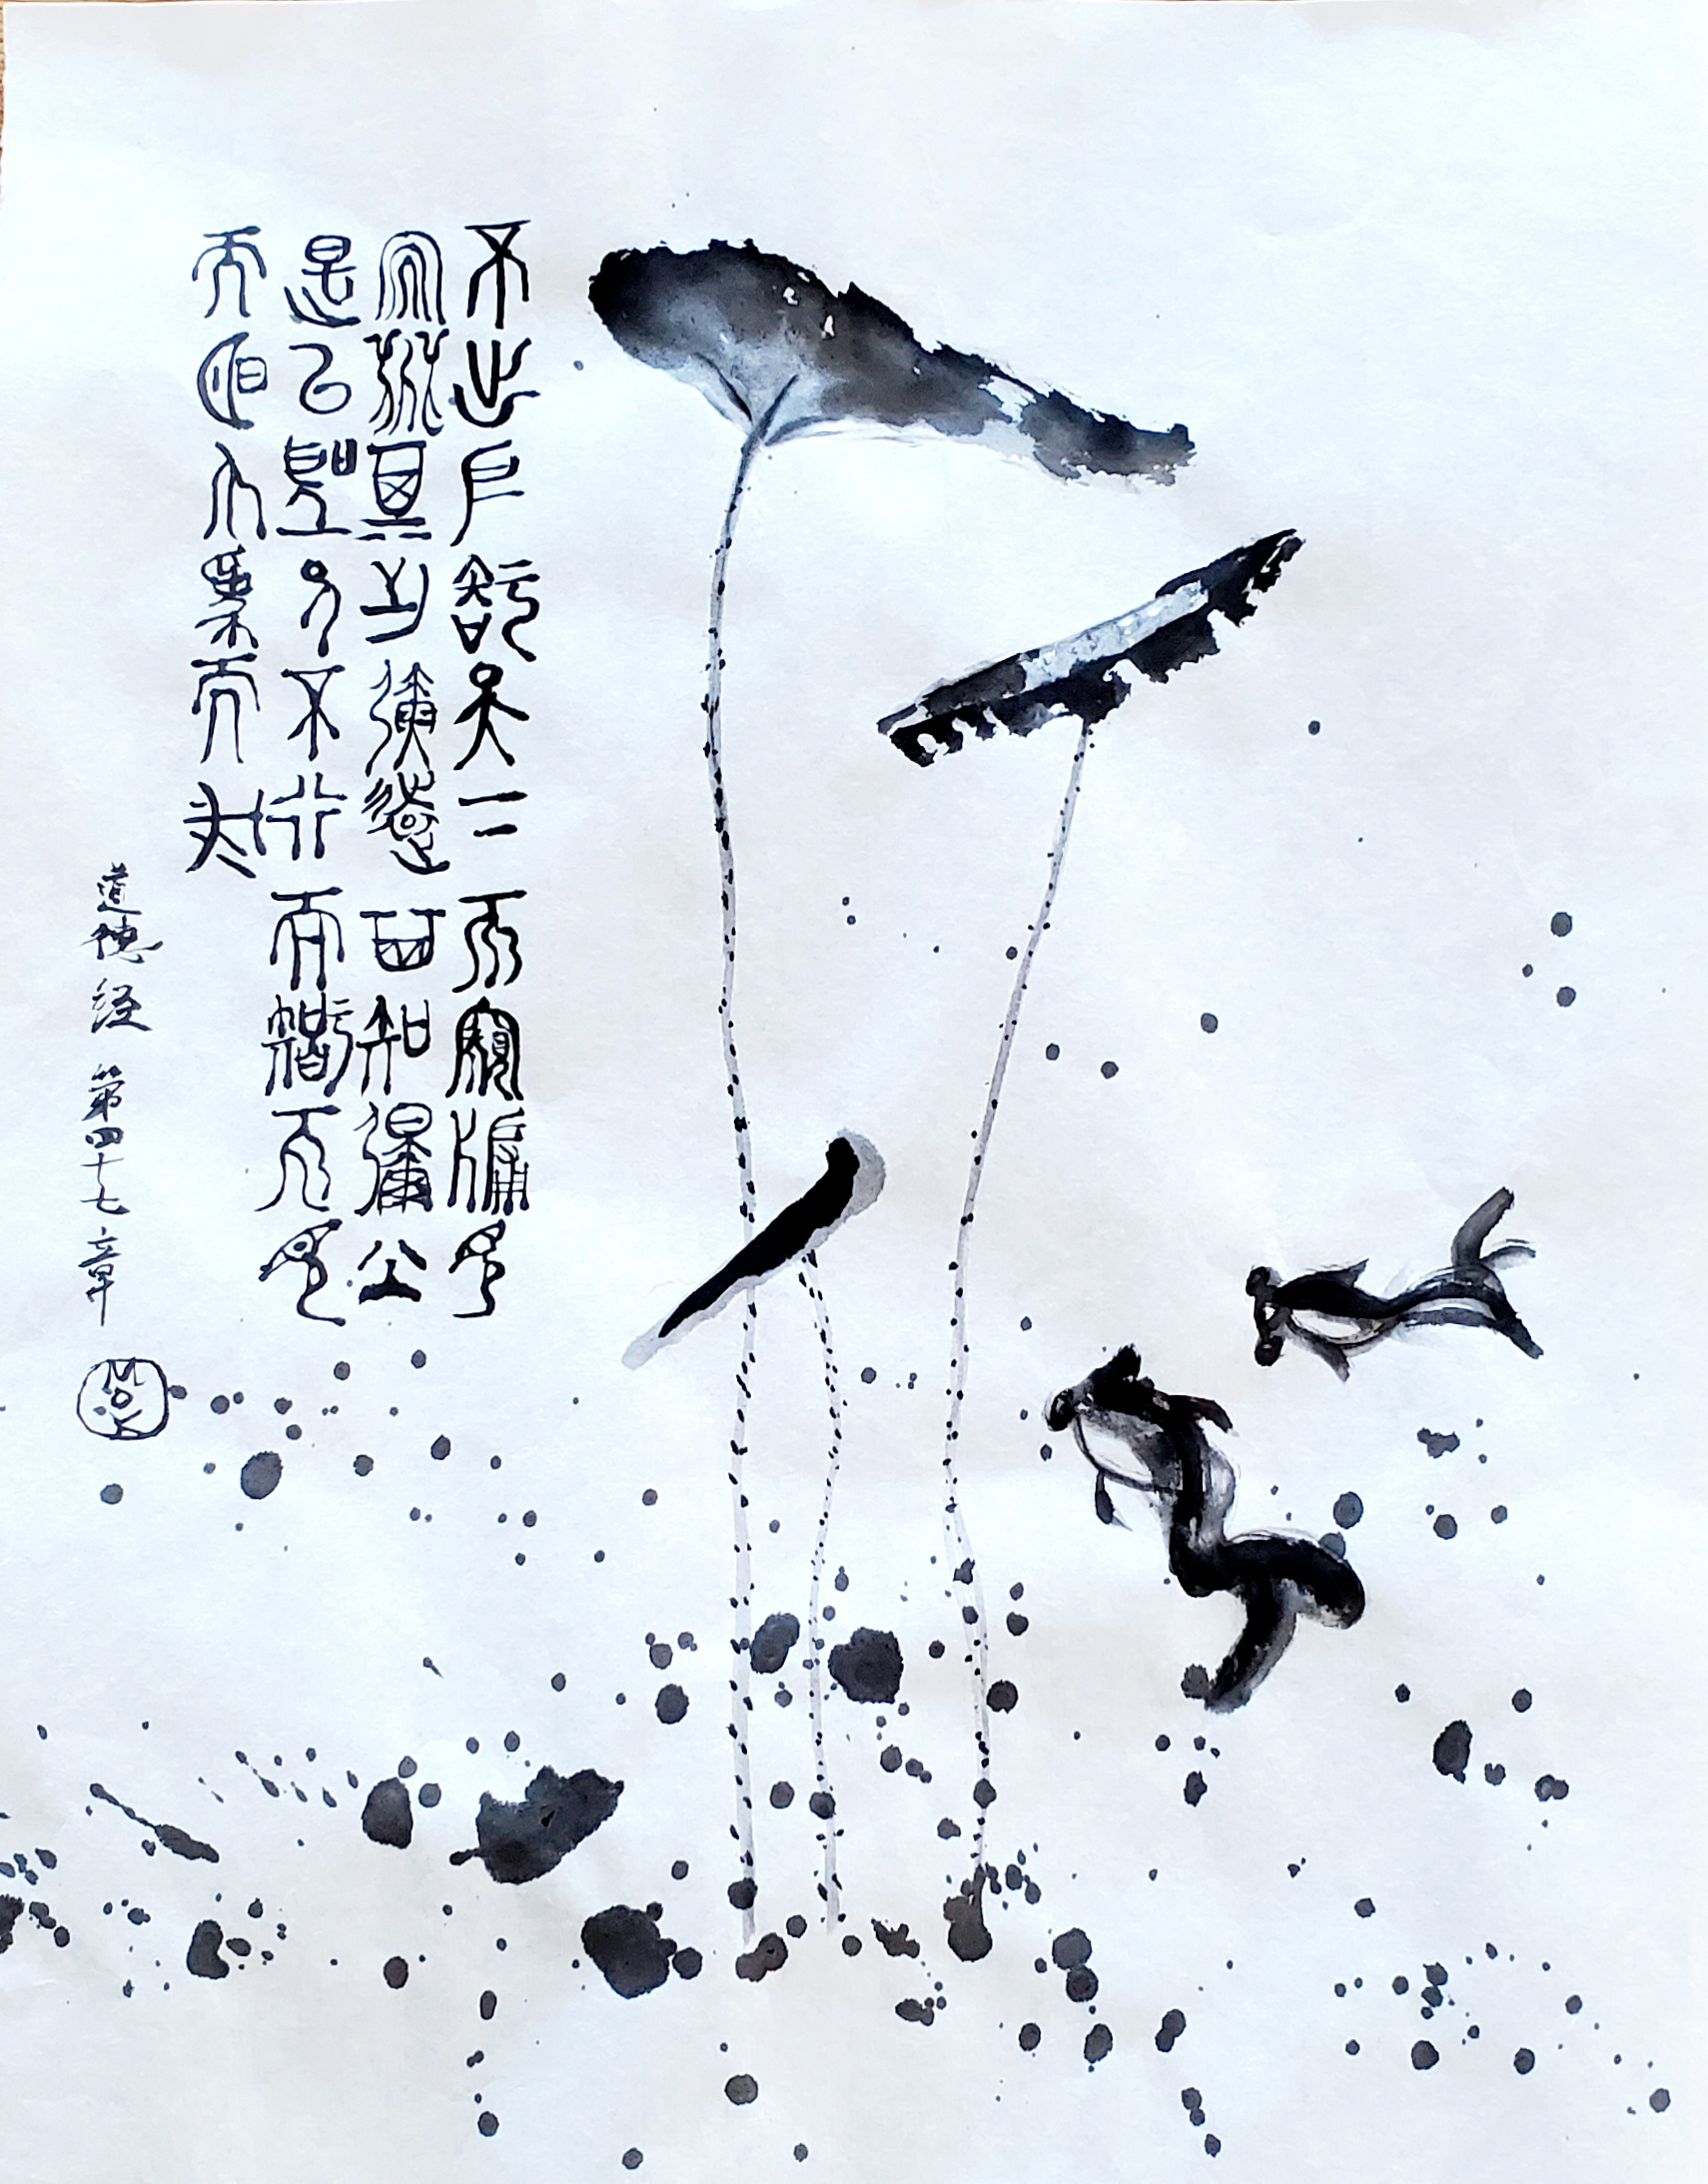 不出戶智天下不窺牖見
天道其出彌遠其知彌少
是以聖人不行而智不見
而明不爲而成
道德经 第四十七章
MOK